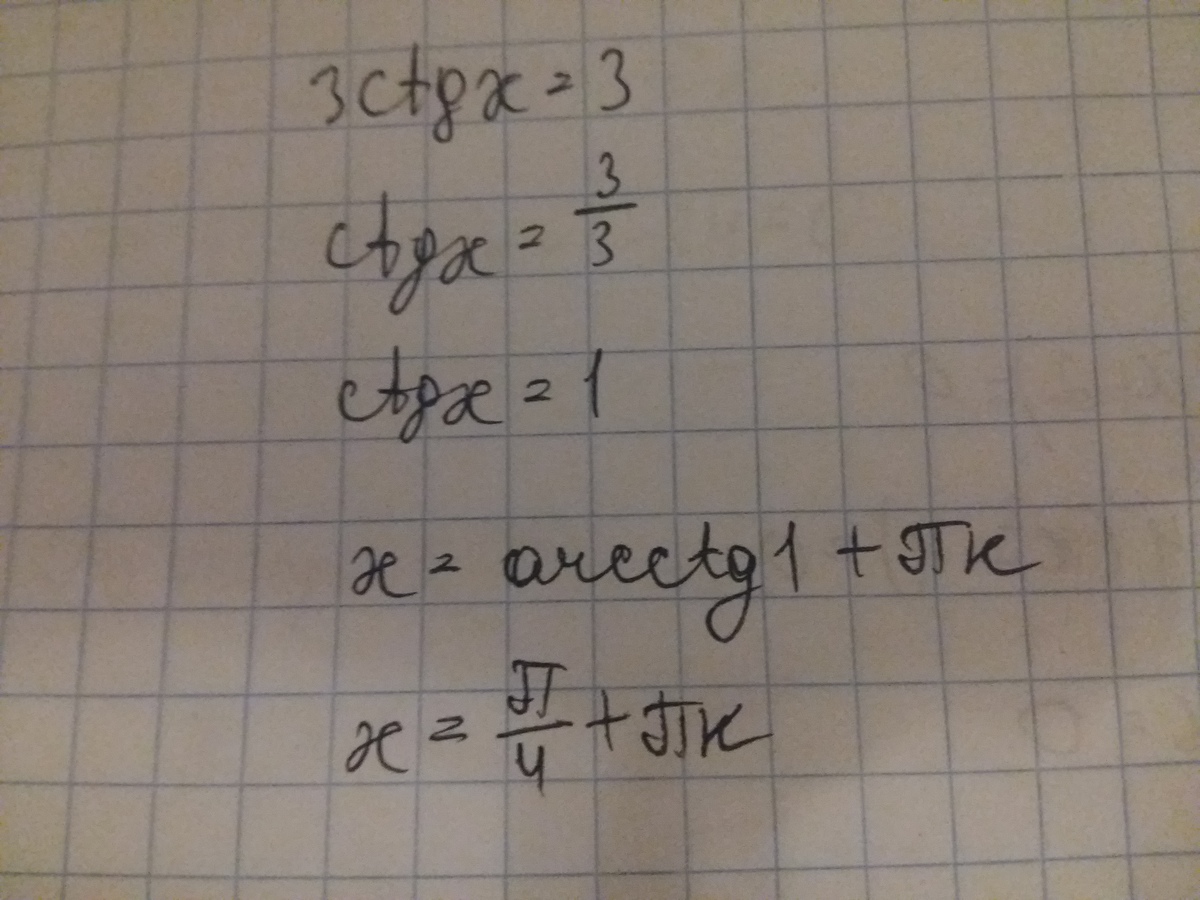 3ctgx = 3
ctgx = 3/3
ctgx = 1
x = arcctg1 + πк
x = π/4 + πк